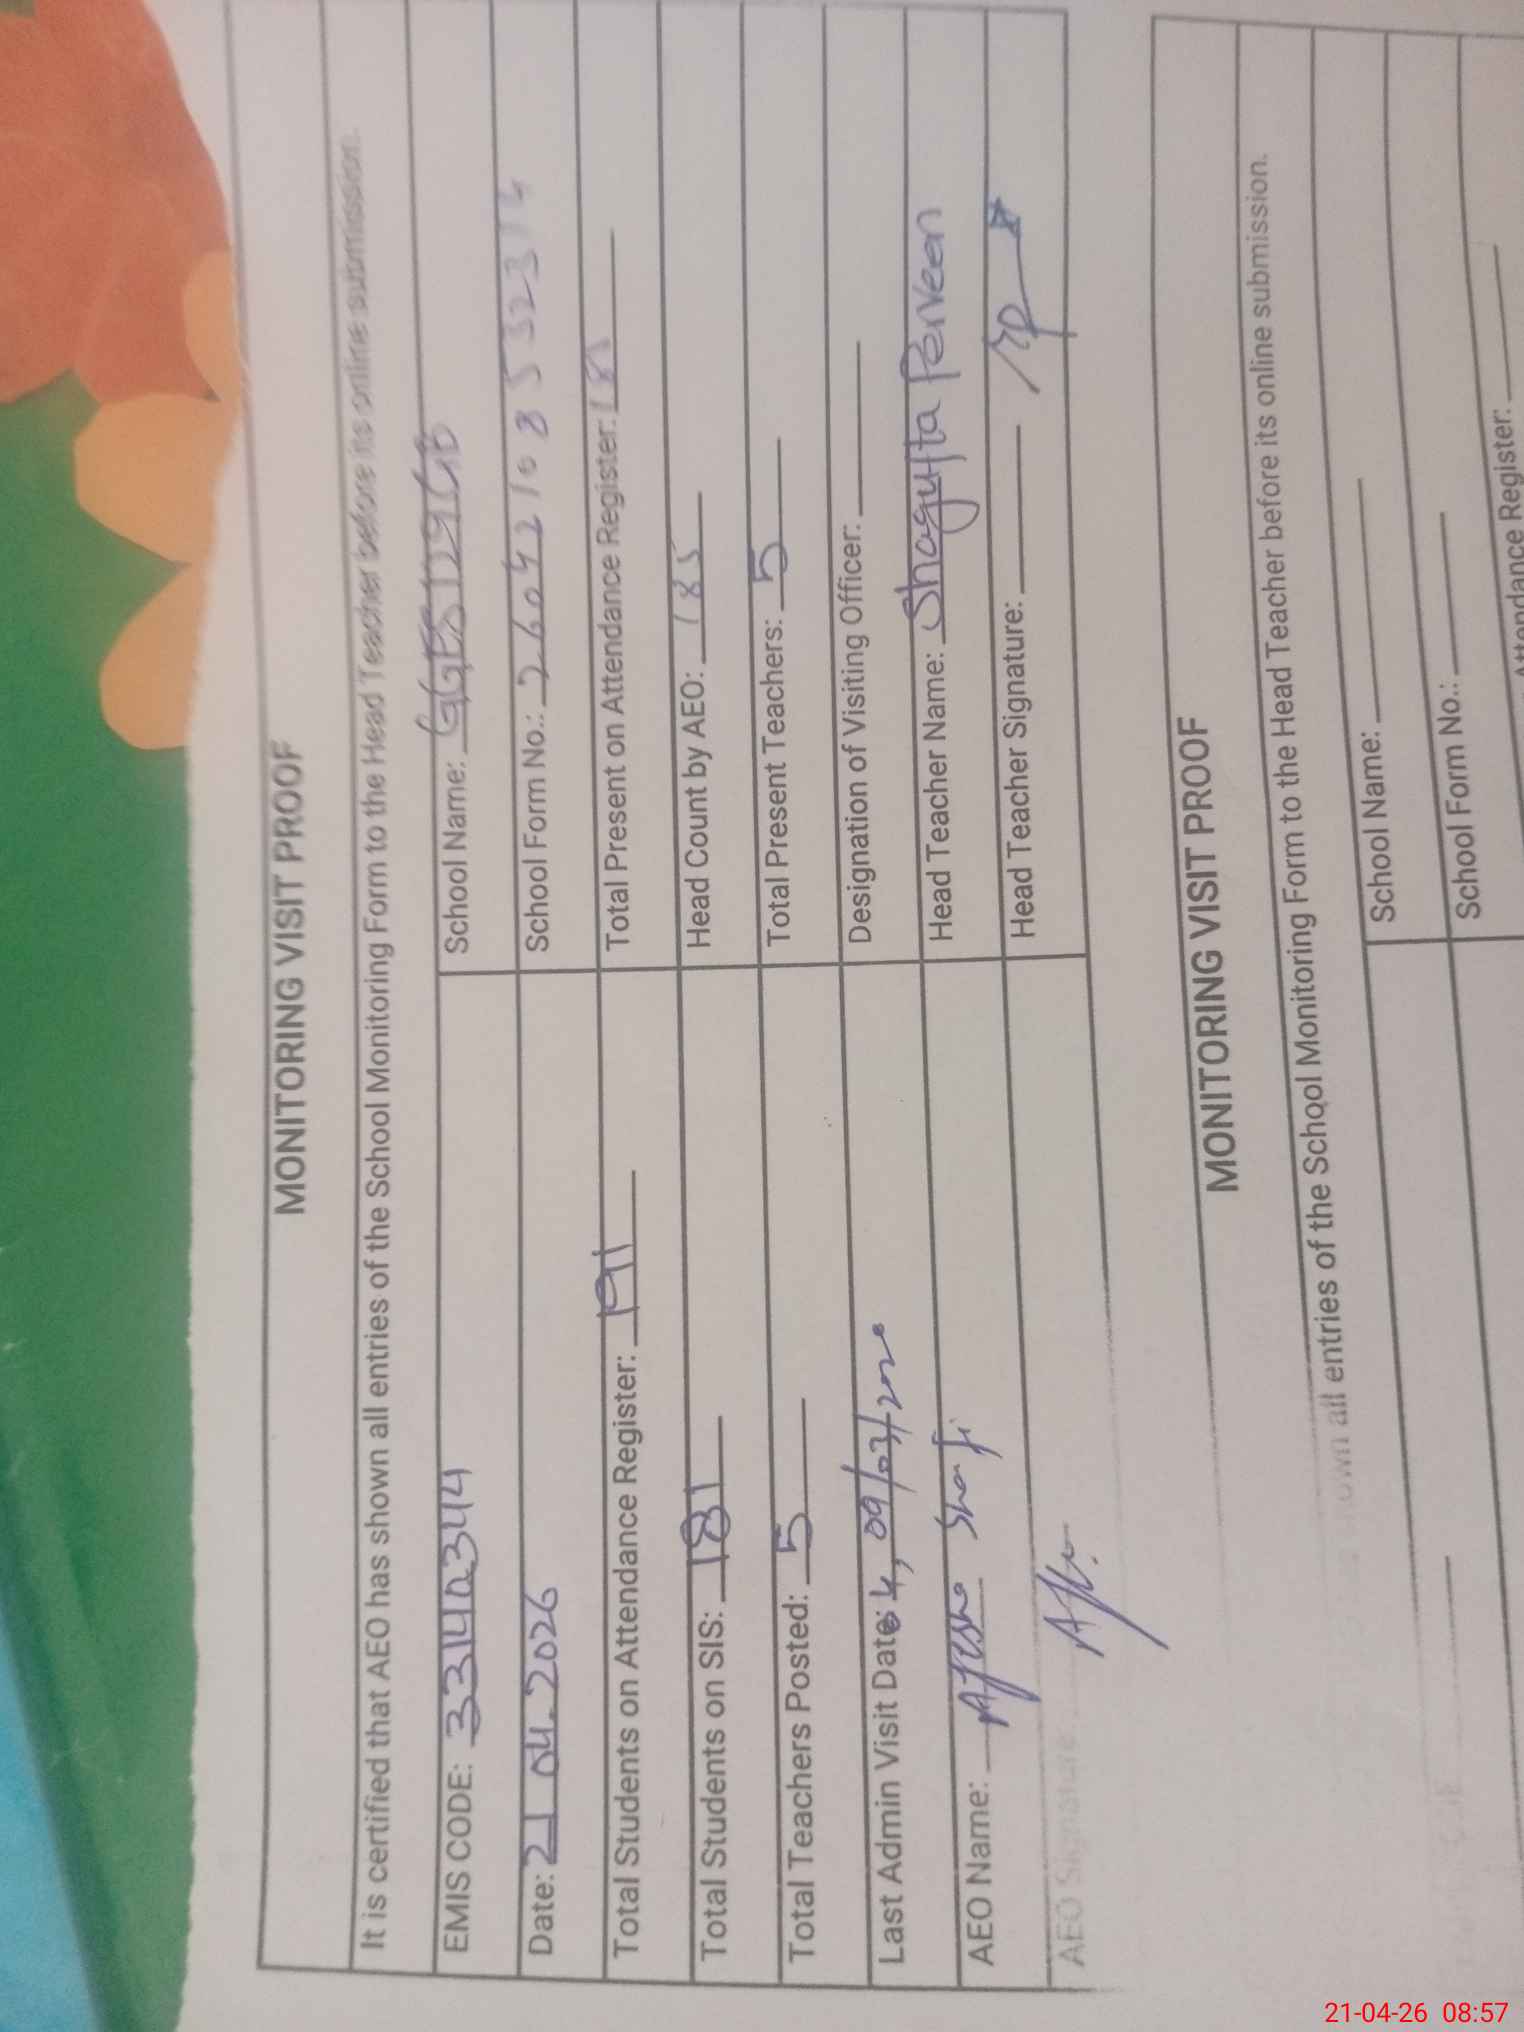 MONITORING VISIT PROOF
It is certified that AEO has shown all entries of the School Monitoring Form to the Head Teacher before its online submission.
EMIS CODE: 33140344 School Name: GGES 129 GB
Date: 21 04.2026 School Form No.:
Total Students on Attendance Register: Total Present on Attendance Register:
Total Students on SIS: 181 Head Count by AEO: 185
Total Teachers Posted: 5 Total Present Teachers: 5
Last Admin Visit Date: Designation of Visiting Officer:
AEO Name: Head Teacher Name: Shagufta Perveen
AEO Signature Head Teacher Signature:
MONITORING VISIT PROOF
own all entries of the School Monitoring Form to the Head Teacher before its online submission.
School Name:
School Form No.:
Attendance Register:
21-04-26 08:57